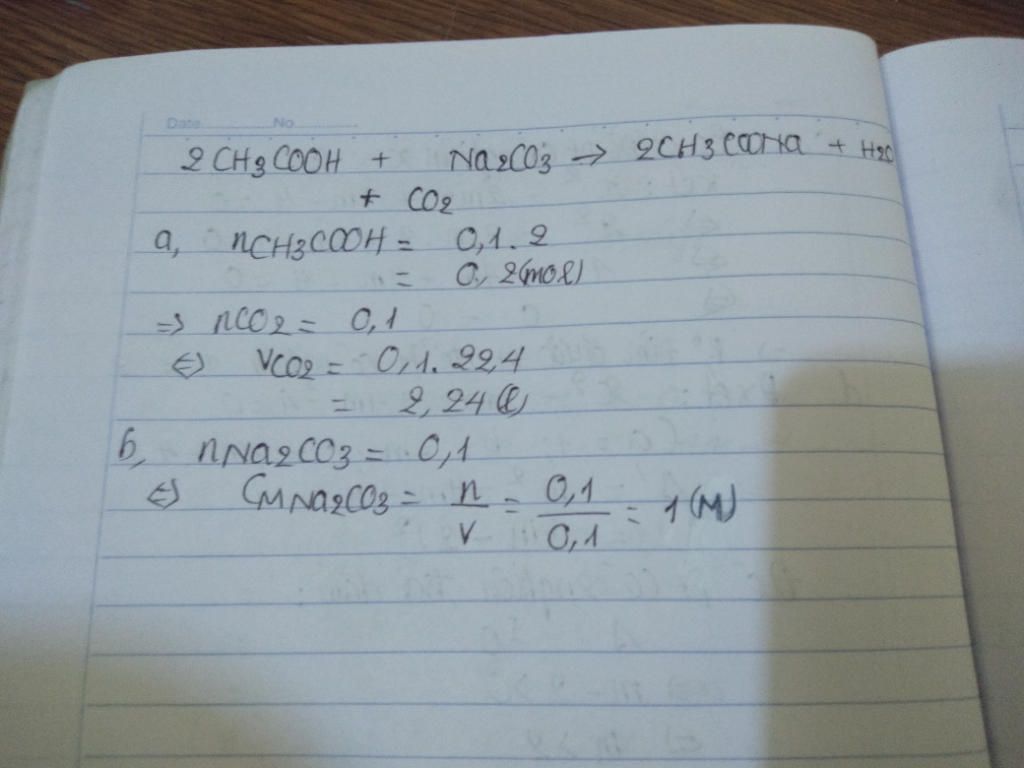 Date No
2CH3COOH + Na2CO3 → 2CH3COONa + H2O
+ CO2
a, nCH3COOH = 0,1.2
= 0,2(mol)
=> nCO2 = 0,1
<=> VCO2 = 0,1.22,4
= 2,24(l)
b, nNa2CO3 = 0,1
<=> CMNa2CO3 = n/V = 0,1/0,1 = 1(M)